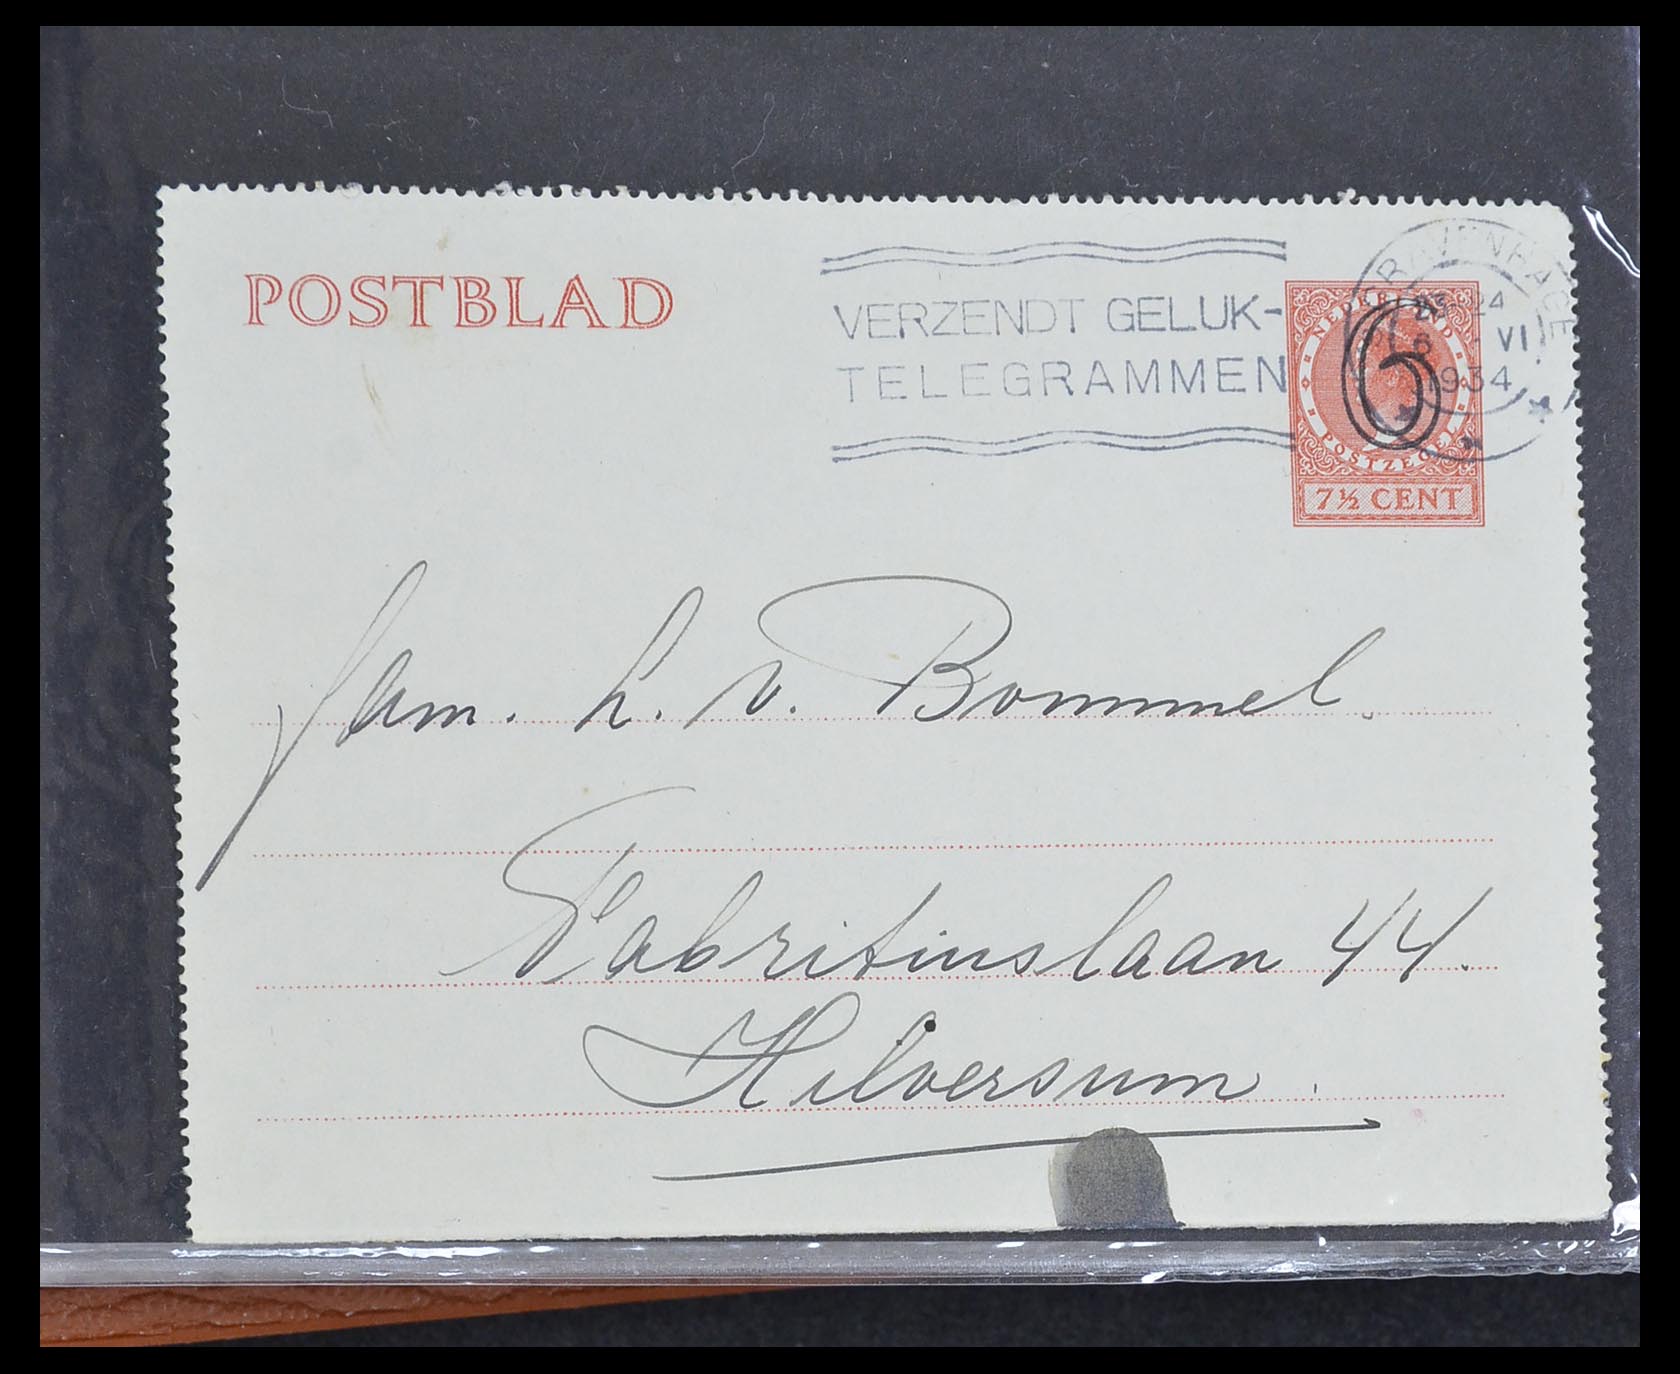 POSTBLAD
VERZENDT GELUK-
TELEGRAMMEN
'S GRAVENHAGE
23-24
6 VI
1934
NEDERLAND
6
POSTZEGEL
7½ CENT
Fam. L. v. Bommel.
Fabritiuslaan 44.
Hilversum.